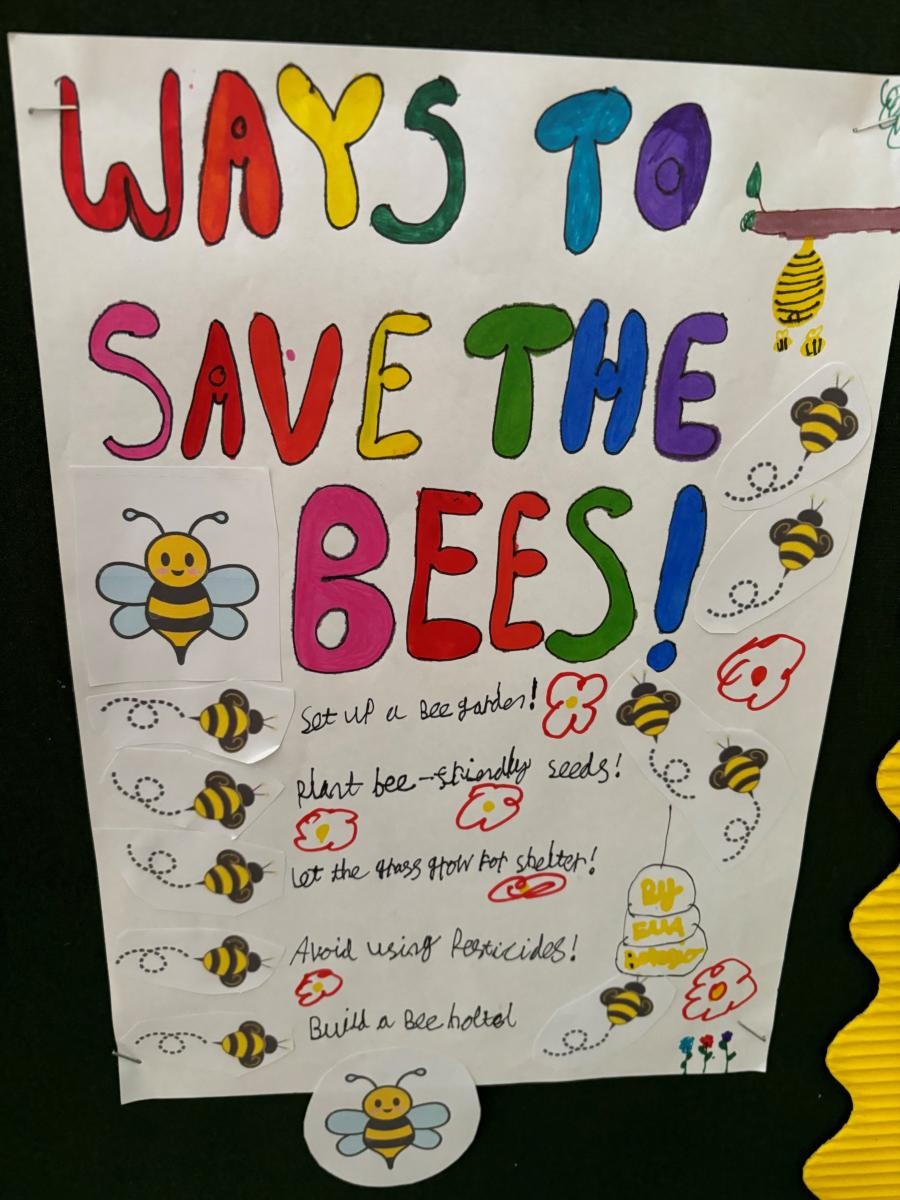 WAYS TO
SAVE THE
BEES!
Set up a Bee garden!
Plant bee-friendly seeds!
Let the grass grow for shelter!
Avoid using Pesticides!
Build a Bee hotel
By